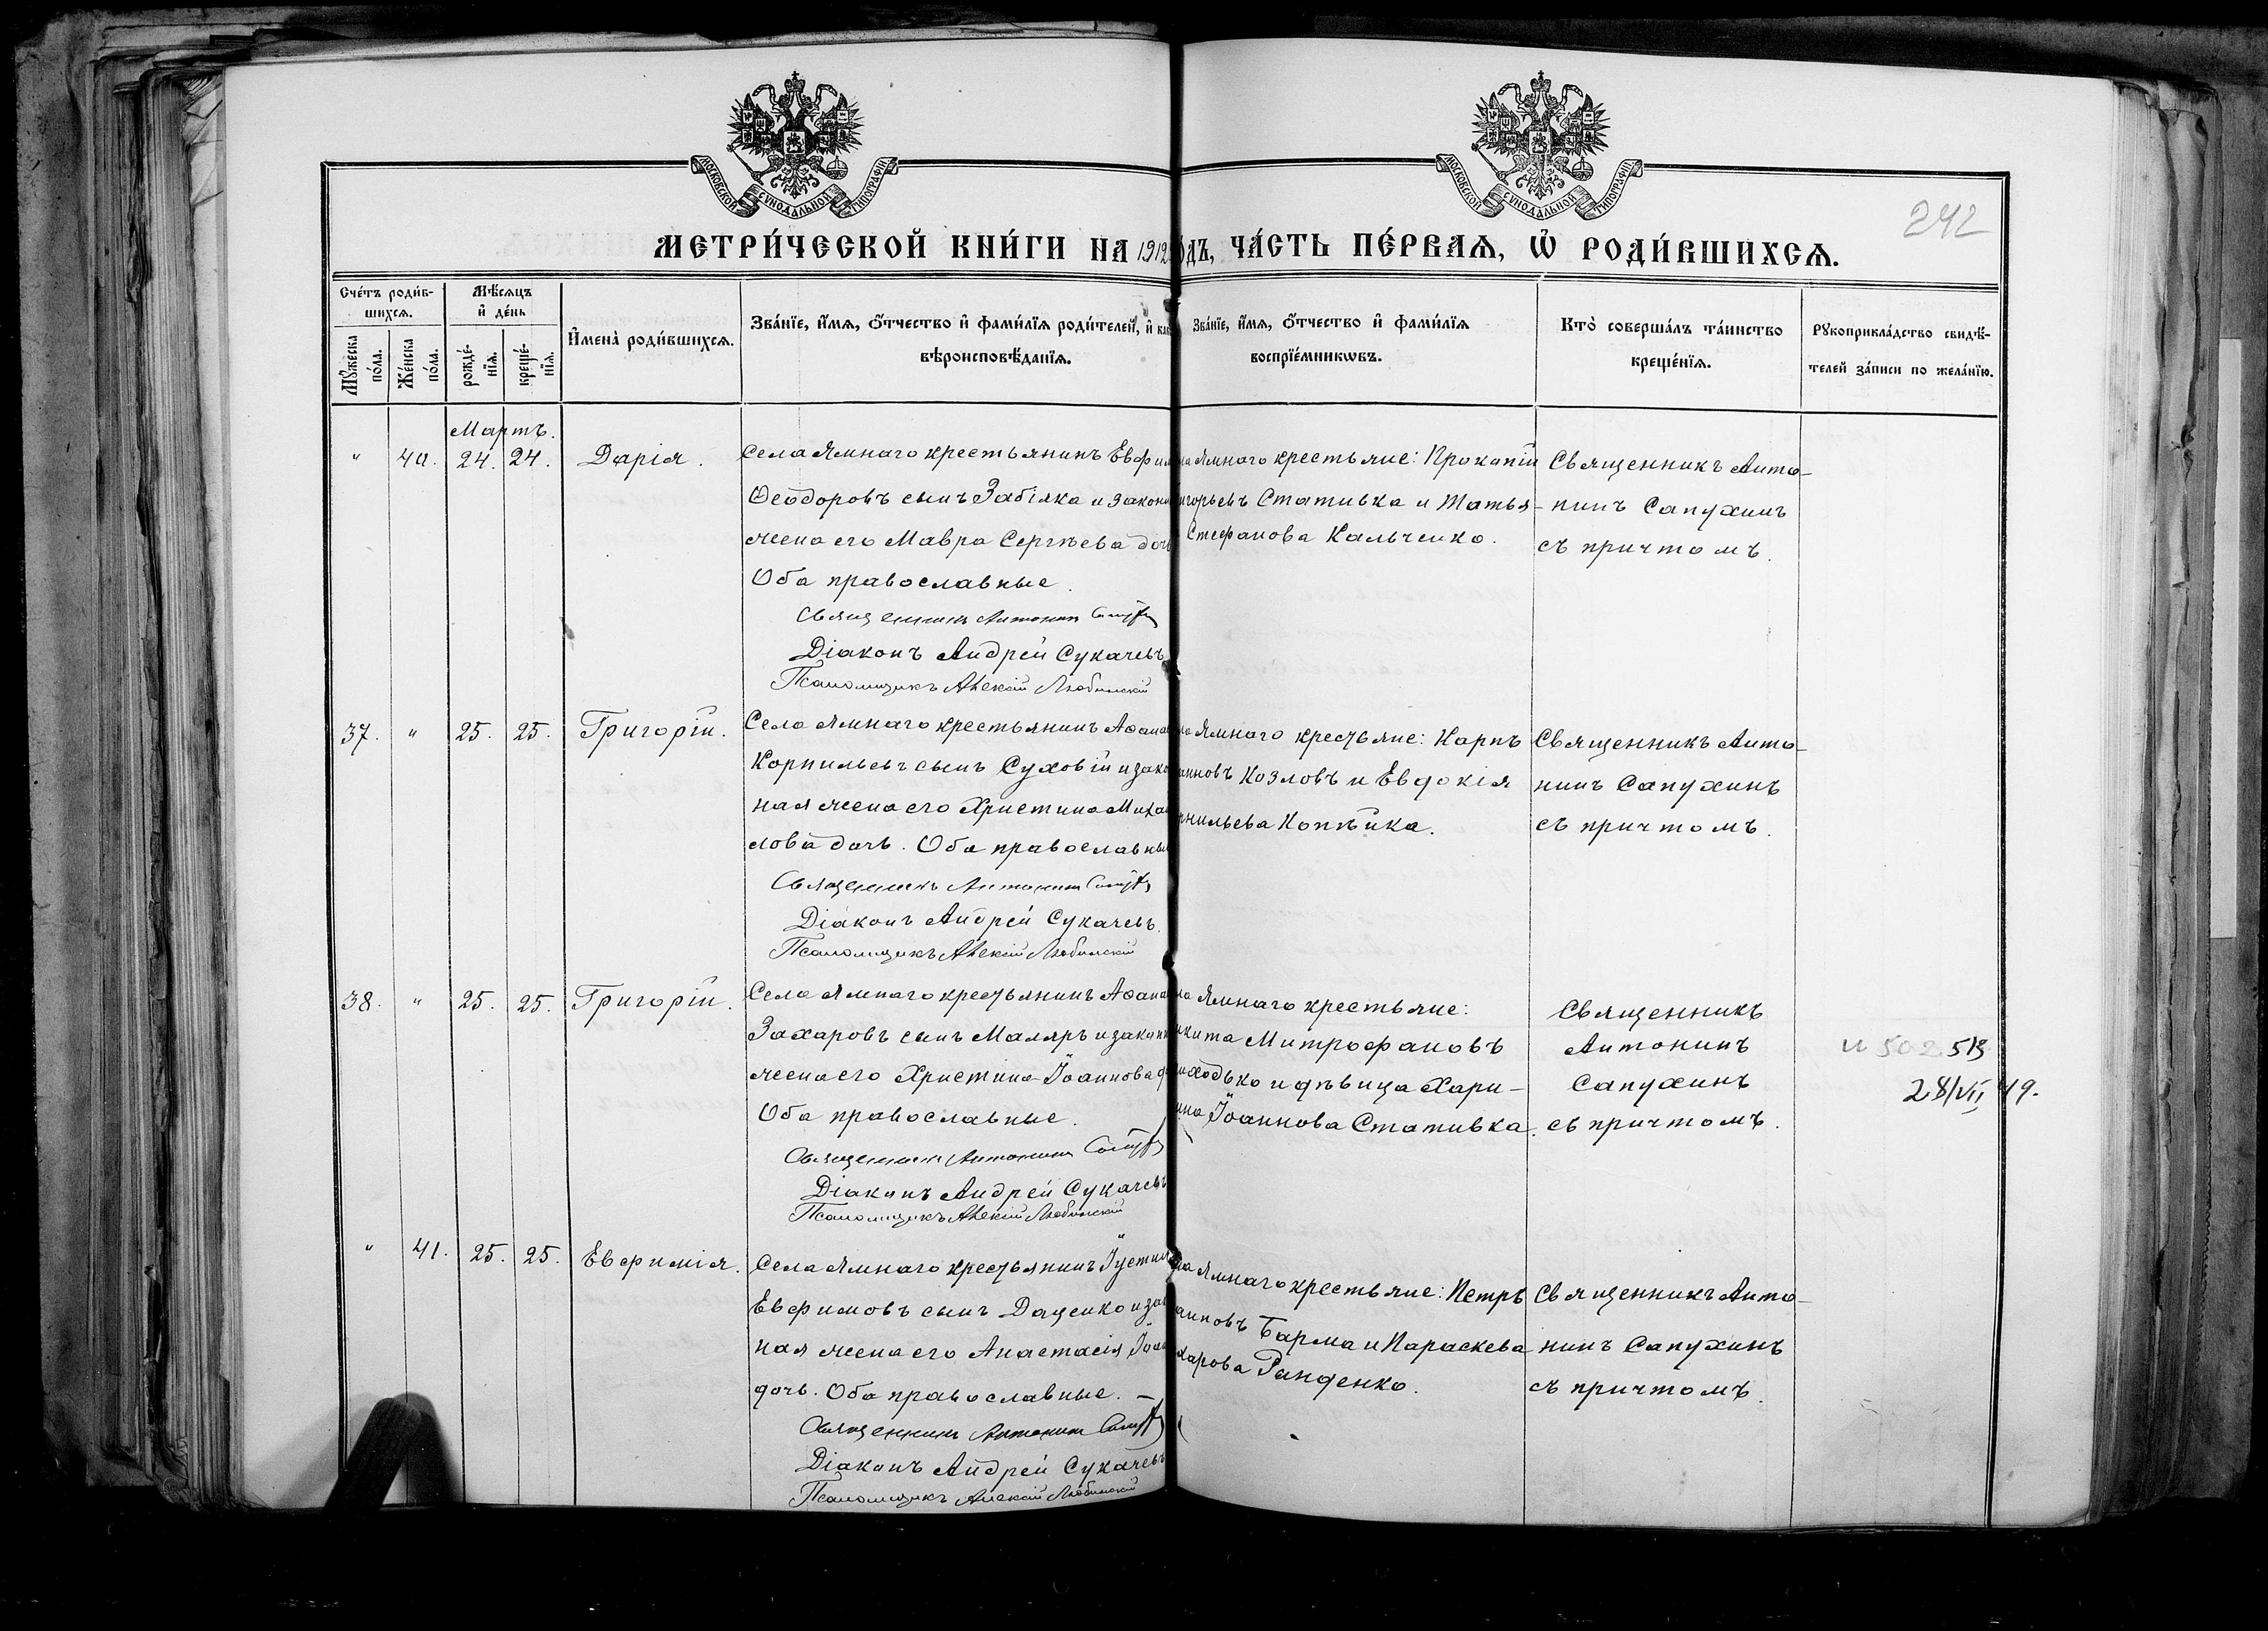 МОСКОВСКОЙ СѴНОДАЛЬНОЙ ТИПОГРАФІИ
МОСКОВСКОЙ СѴНОДАЛЬНОЙ ТИПОГРАФІИ
242
МЕТРИ́ЧЕСКОЙ КНИ́ГИ НА 1912 ОДЪ, ЧА́СТЬ ПЕ́РВАЯ, Ѡ РОДИ́ВШИХСЯ.
Сче́тъ роди́в-
шихся.
Мѣ́сяцъ
и҆ де́нь
Мꙋ́жеска по́ла.
Же́нска по́ла.
рожде́-
нїя.
креще́-
нїя.
И҆мена̀ роди́вшихся.
Зва́нїе, и҆́мя, ѻ҆́тчество и҆ фами́лїя роди́телей, и҆ как
вѣроисповѣ́данїя.
Зва́нїе, и҆́мя, ѻ҆́тчество и҆ фами́лїя
воспрїе́мникѡвъ.
Кто̀ соверша́лъ та́инство
креще́нїя.
Рꙋкоприкла́дство свидѣ́-
телей за́писи по жела́нїю.
Мартъ.
" 40. 24. 24. Дарія.
Села Ямнаго крестьянинъ Евфим
Ѳеодоровъ сынъ Забіяка и законн
жена его Мавра Сергѣева доч
Оба православные.
Священникъ Антонин
Діаконъ Андрей Сукачевъ
Псаломщикъ Алексій Любимскій
ла Ямнаго крестьяне: Прокопій
игорьевъ Стативка и Татья-
Стефанова Кальченко.
Священникъ Анто-
нинъ Сапухинъ
съ причтомъ.
37. " 25. 25. Григорій.
Села Ямнаго крестьянинъ Аѳана
Корнильевъ сынъ Суховій и зако
ная жена его Христина Михаи
лова дочь. Оба православны
Священникъ Антонин
Діаконъ Андрей Сукачевъ.
Псаломщикъ Алексій Любимскій
ла Ямнаго крестьяне: Карпъ
анновъ Козловъ и Евдокія
рнильева Копѣйка.
Священникъ Анто-
нинъ Сапухинъ
съ причтомъ.
38. " 25. 25. Григорій.
Села Ямнаго крестьянинъ Аѳана
Захаровъ сынъ Маляръ и законн
жена его Христина Іоаннова д
Оба православные.
Священникъ Антонин
Діаконъ Андрей Сукачевъ
Псаломщикъ Алексій Любимскій
ла Ямнаго крестьяне:
икита Митрофановъ
иходько и дѣвица Хари-
ина Іоаннова Стативка.
Священникъ
Антонинъ
Сапухинъ
съ причтомъ.
28/VII 49.
" 41. 25. 25. Евфимія.
Села Ямнаго крестьянинъ Іустин
Евфимовъ сынъ Даценко и зак
ная жена его Анастасія Іоан
дочь. Оба православные.
Священникъ Антонин
Діаконъ Андрей Сукачевъ
Псаломщикъ Алексій Любимскій
ла Ямнаго крестьяне: Петръ
анновъ Барма и Параскева
харова Ранденко.
Священникъ Анто-
нинъ Сапухинъ
съ причтомъ.